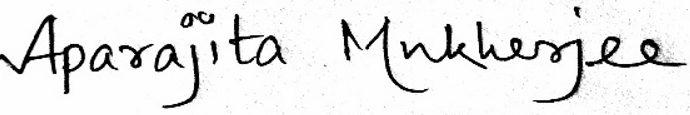 Aparajita Mukherjee